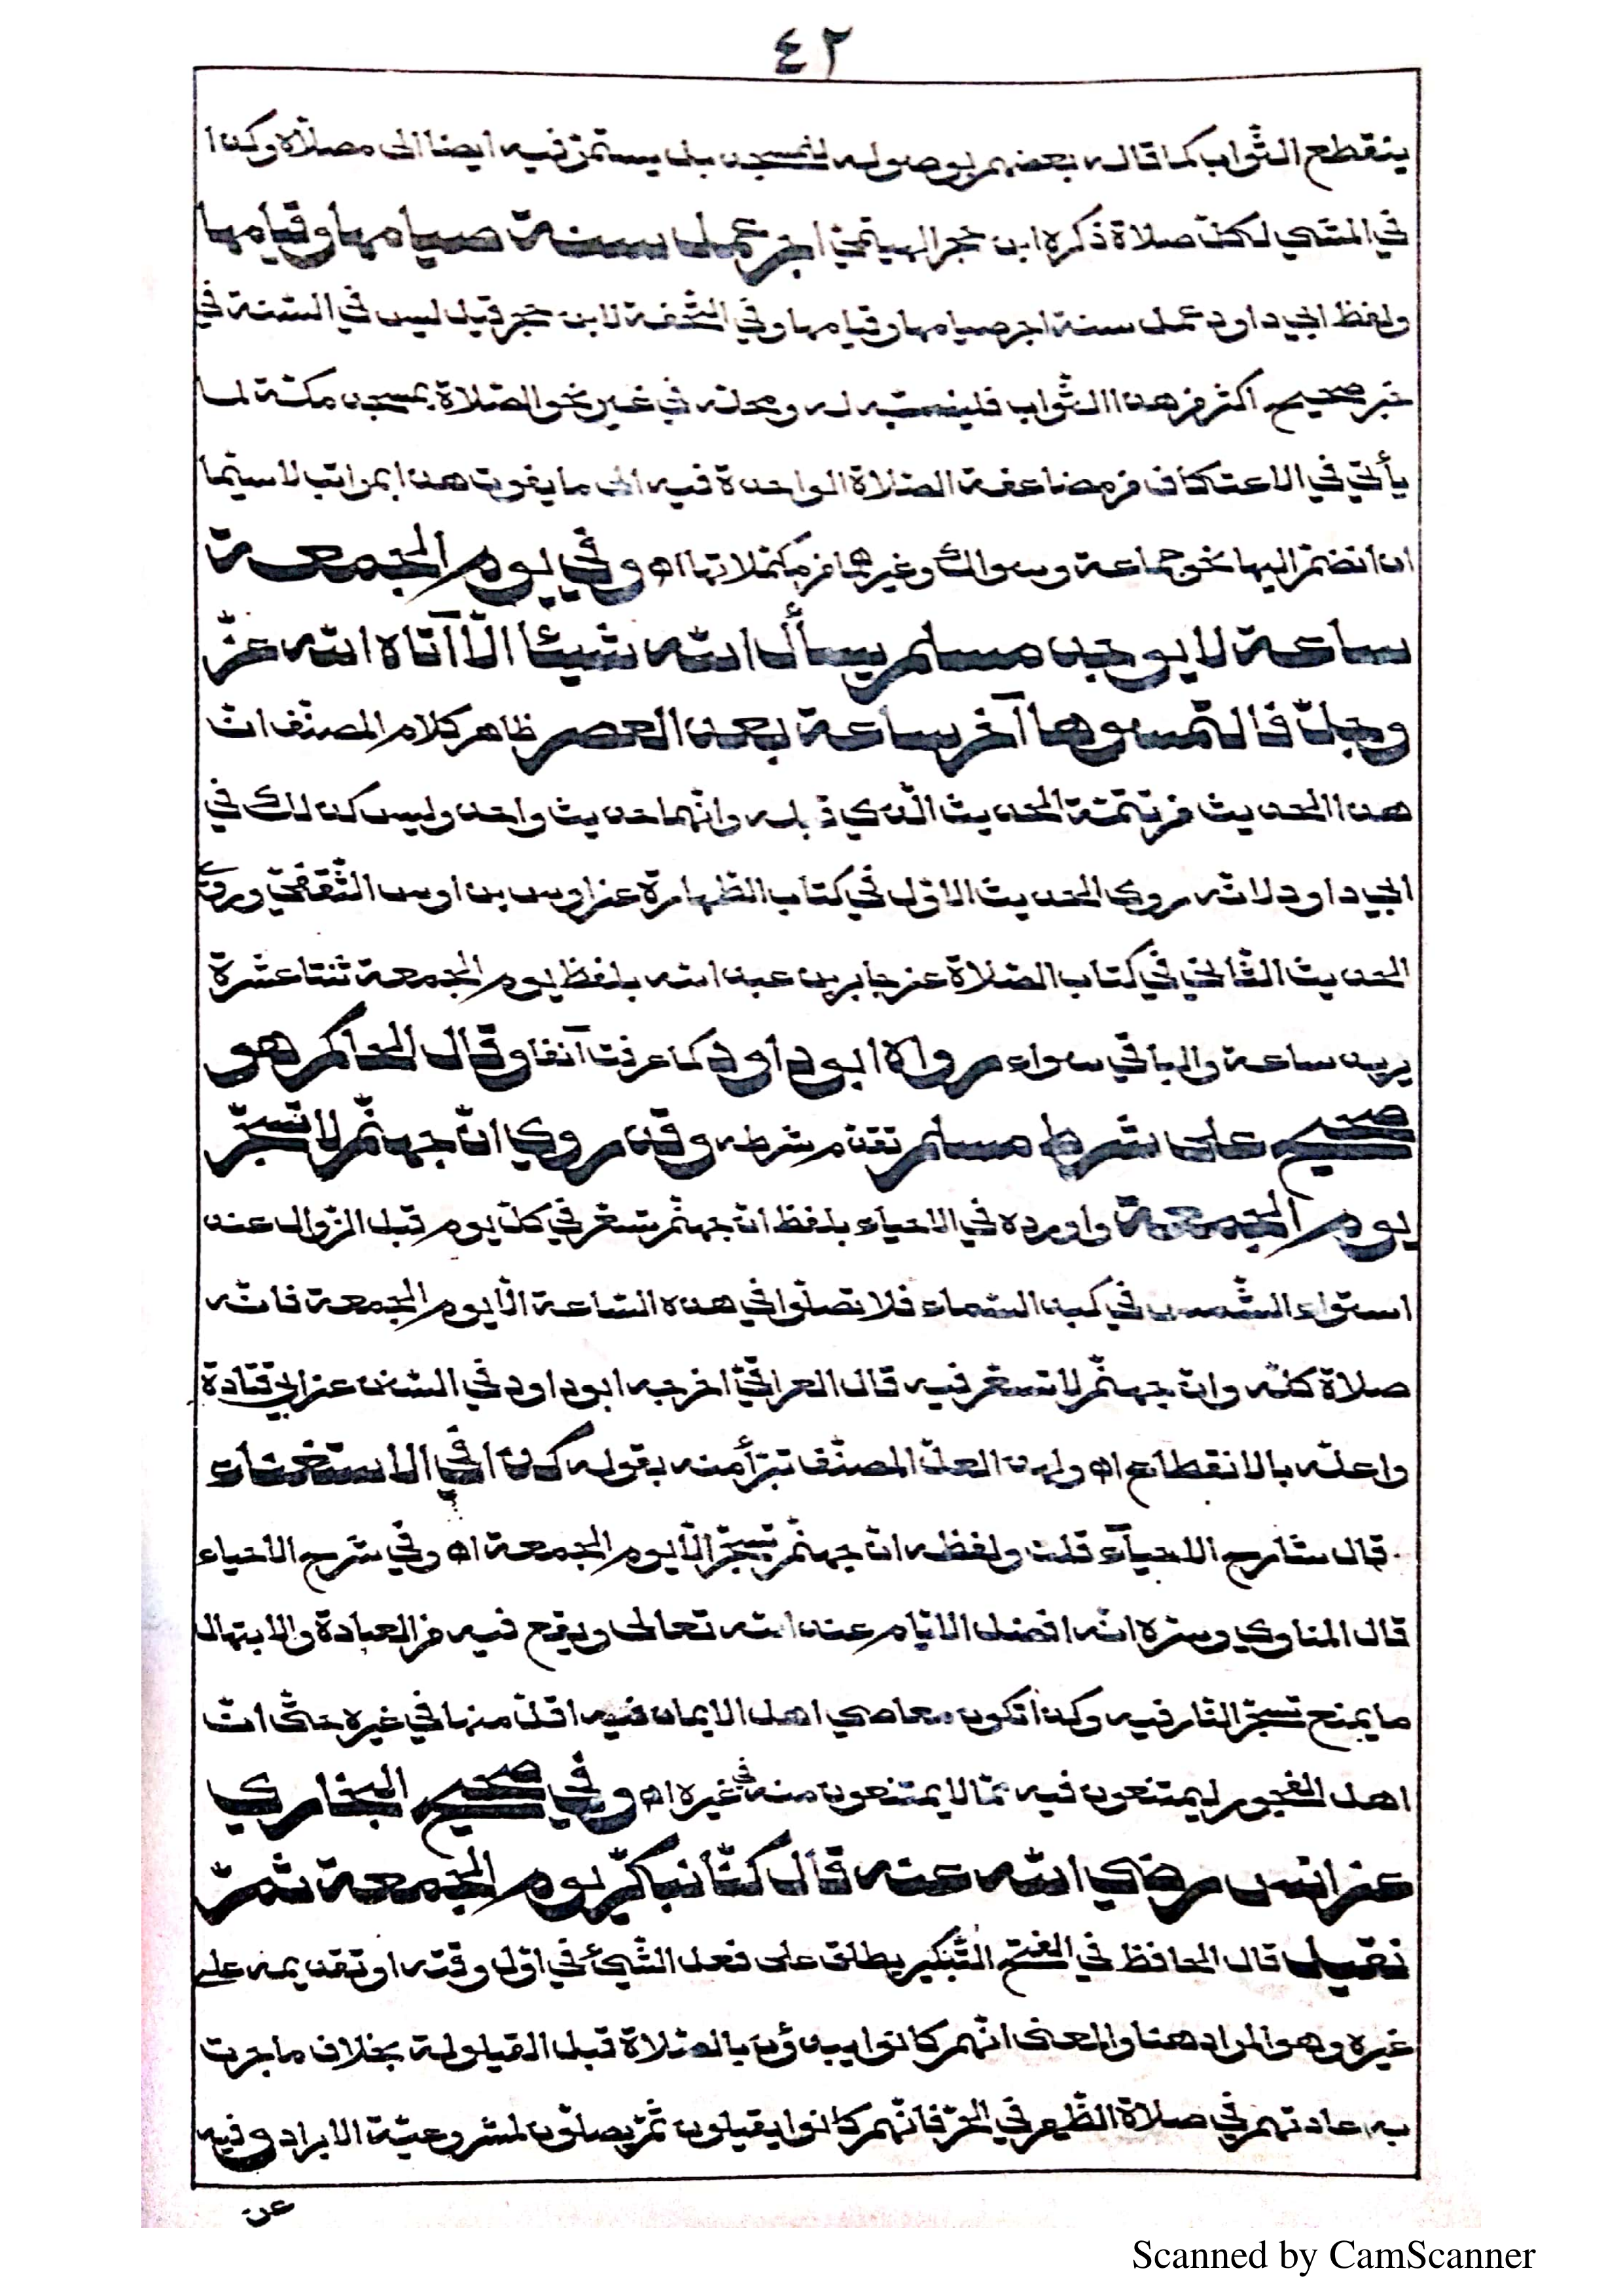 ٤٢
ينقطع الثّواب كما قاله بعضهم بوصوله للمسجد بل يستمرّ فيه ايضا الى مصلّاه وكذا
في المشي لكلّ صلاة ذكره ابن حجر الهيتميّ اجر عمل سنة صيامها وقيامها
ولفظ ابي داود عمل سنة اجر صيامها وقيامها وفي التّحفة لابن حجر قيل ليس في السّنة في
خبر صحيح اكثر من هذا الثّواب فليتنبّه له ومحلّه في غير نحو الصّلاة بمسجد مكّة لما
يأتي في الاعتكاف من مضاعفة الصّلاة الواحدة فيه الى ما يفوت هذا بمراتب لاسيّما
ان انضمّ اليها نحو جماعة وسواك وغيرهما من مكمّلاتها اه وفي يوم الجمعة
ساعة لا يوجد مسلم يسأل الله شيئا الّا آتاه الله عزّ
وجلّ فالتمسوها آخر ساعة بعد العصر ظاهر كلام المصنّف انّ
هذا الحديث من تتمّة الحديث الّذي قبله وانّهما حديث واحد وليس كذلك في
ابي داود لانّه روى الحديث الاوّل في كتاب الطّهارة عن اوس بن اوس الثّقفيّ وروى
الحديث الثّاني في كتاب الصّلاة عن جابر بن عبد الله بلفظ يوم الجمعة ثنتا عشرة
يريد ساعة والباقي سواء رواه ابو داود كما عرفت آنفا وقال الحاكم هو
صحيح على شرط مسلم تقدّم شرطه وقد روي انّ جهنّم لا تسجّر
يوم الجمعة واورده في الاحياء بلفظ انّ جهنّم تسعّر في كلّ يوم قبل الزّوال عند
استواء الشّمس في كبد السّماء فلا تصلّوا في هذه السّاعة الّا يوم الجمعة فانّه
صلاة كلّه وانّ جهنّم لا تسعّر فيه قال العراقيّ اخرجه ابو داود في السّنن عن ابي قتادة
واعلّه بالانقطاع اه ولهذا لعلّ المصنّف تبرّأ منه بقوله كذا في الاستغناء
قال شارح الاحيآء قلت ولفظه انّ جهنّم تسجّر الّا يوم الجمعة اه وفي شرح الاحياء
قال المناوي وسرّه انّه افضل الايّام عند الله تعالى ويقع فيه من العبادة والابتهال
ما يمنع تسجّر النّار فيه وكذا تكون معاصي اهل الايمان فيه اقلّ منها في غيره حتّى انّ
اهل الفجور ليمتنعون فيه ممّا لا يمتنعون منه في غيره اه وفي صحيح البخاري
عن انس رضي الله عنه قال كنّا نبكّر يوم الجمعة ثمّ
نقيل قال الحافظ في الفتح التّبكير يطلق على فعل الشّيئ في اوّل وقته او تقديمه على
غيره وهو المراد هنا والمعنى انّهم كانوا يبدؤن بالصّلاة قبل القيلولة بخلاف ما جرت
به عادتهم في صلاة الظّهر في الحرّ فانّهم كانوا يقيلون ثمّ يصلّون لمشروعيّة الابراد وفيه
عن
Scanned by CamScanner